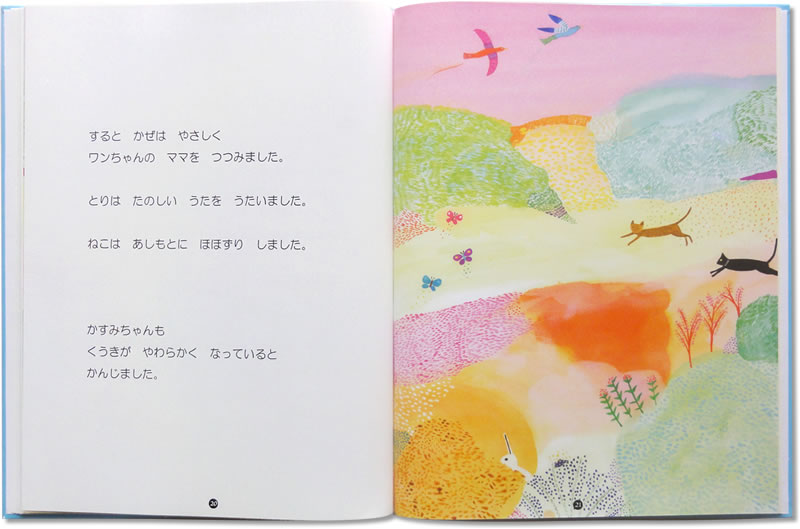 すると　かぜは　やさしく
ワンちゃんの　ママを　つつみました。
とりは　たのしい　うたを　うたいました。
ねこは　あしもとに　ほほずり　しました。
かすみちゃんも
くうきが　やわらかく　なっていると
かんじました。
20
21